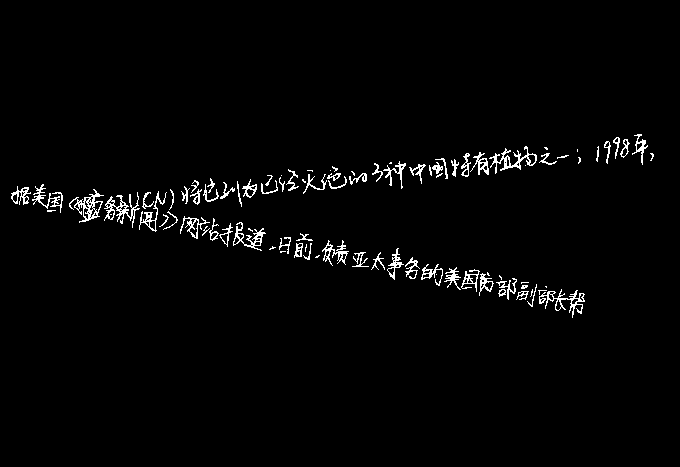 UCN)将它列为已经灭绝的3种中国特有植物之一；1998年，
据美国《务新闻》网站报道，日前，负责亚太事务的美国防部副部长帮